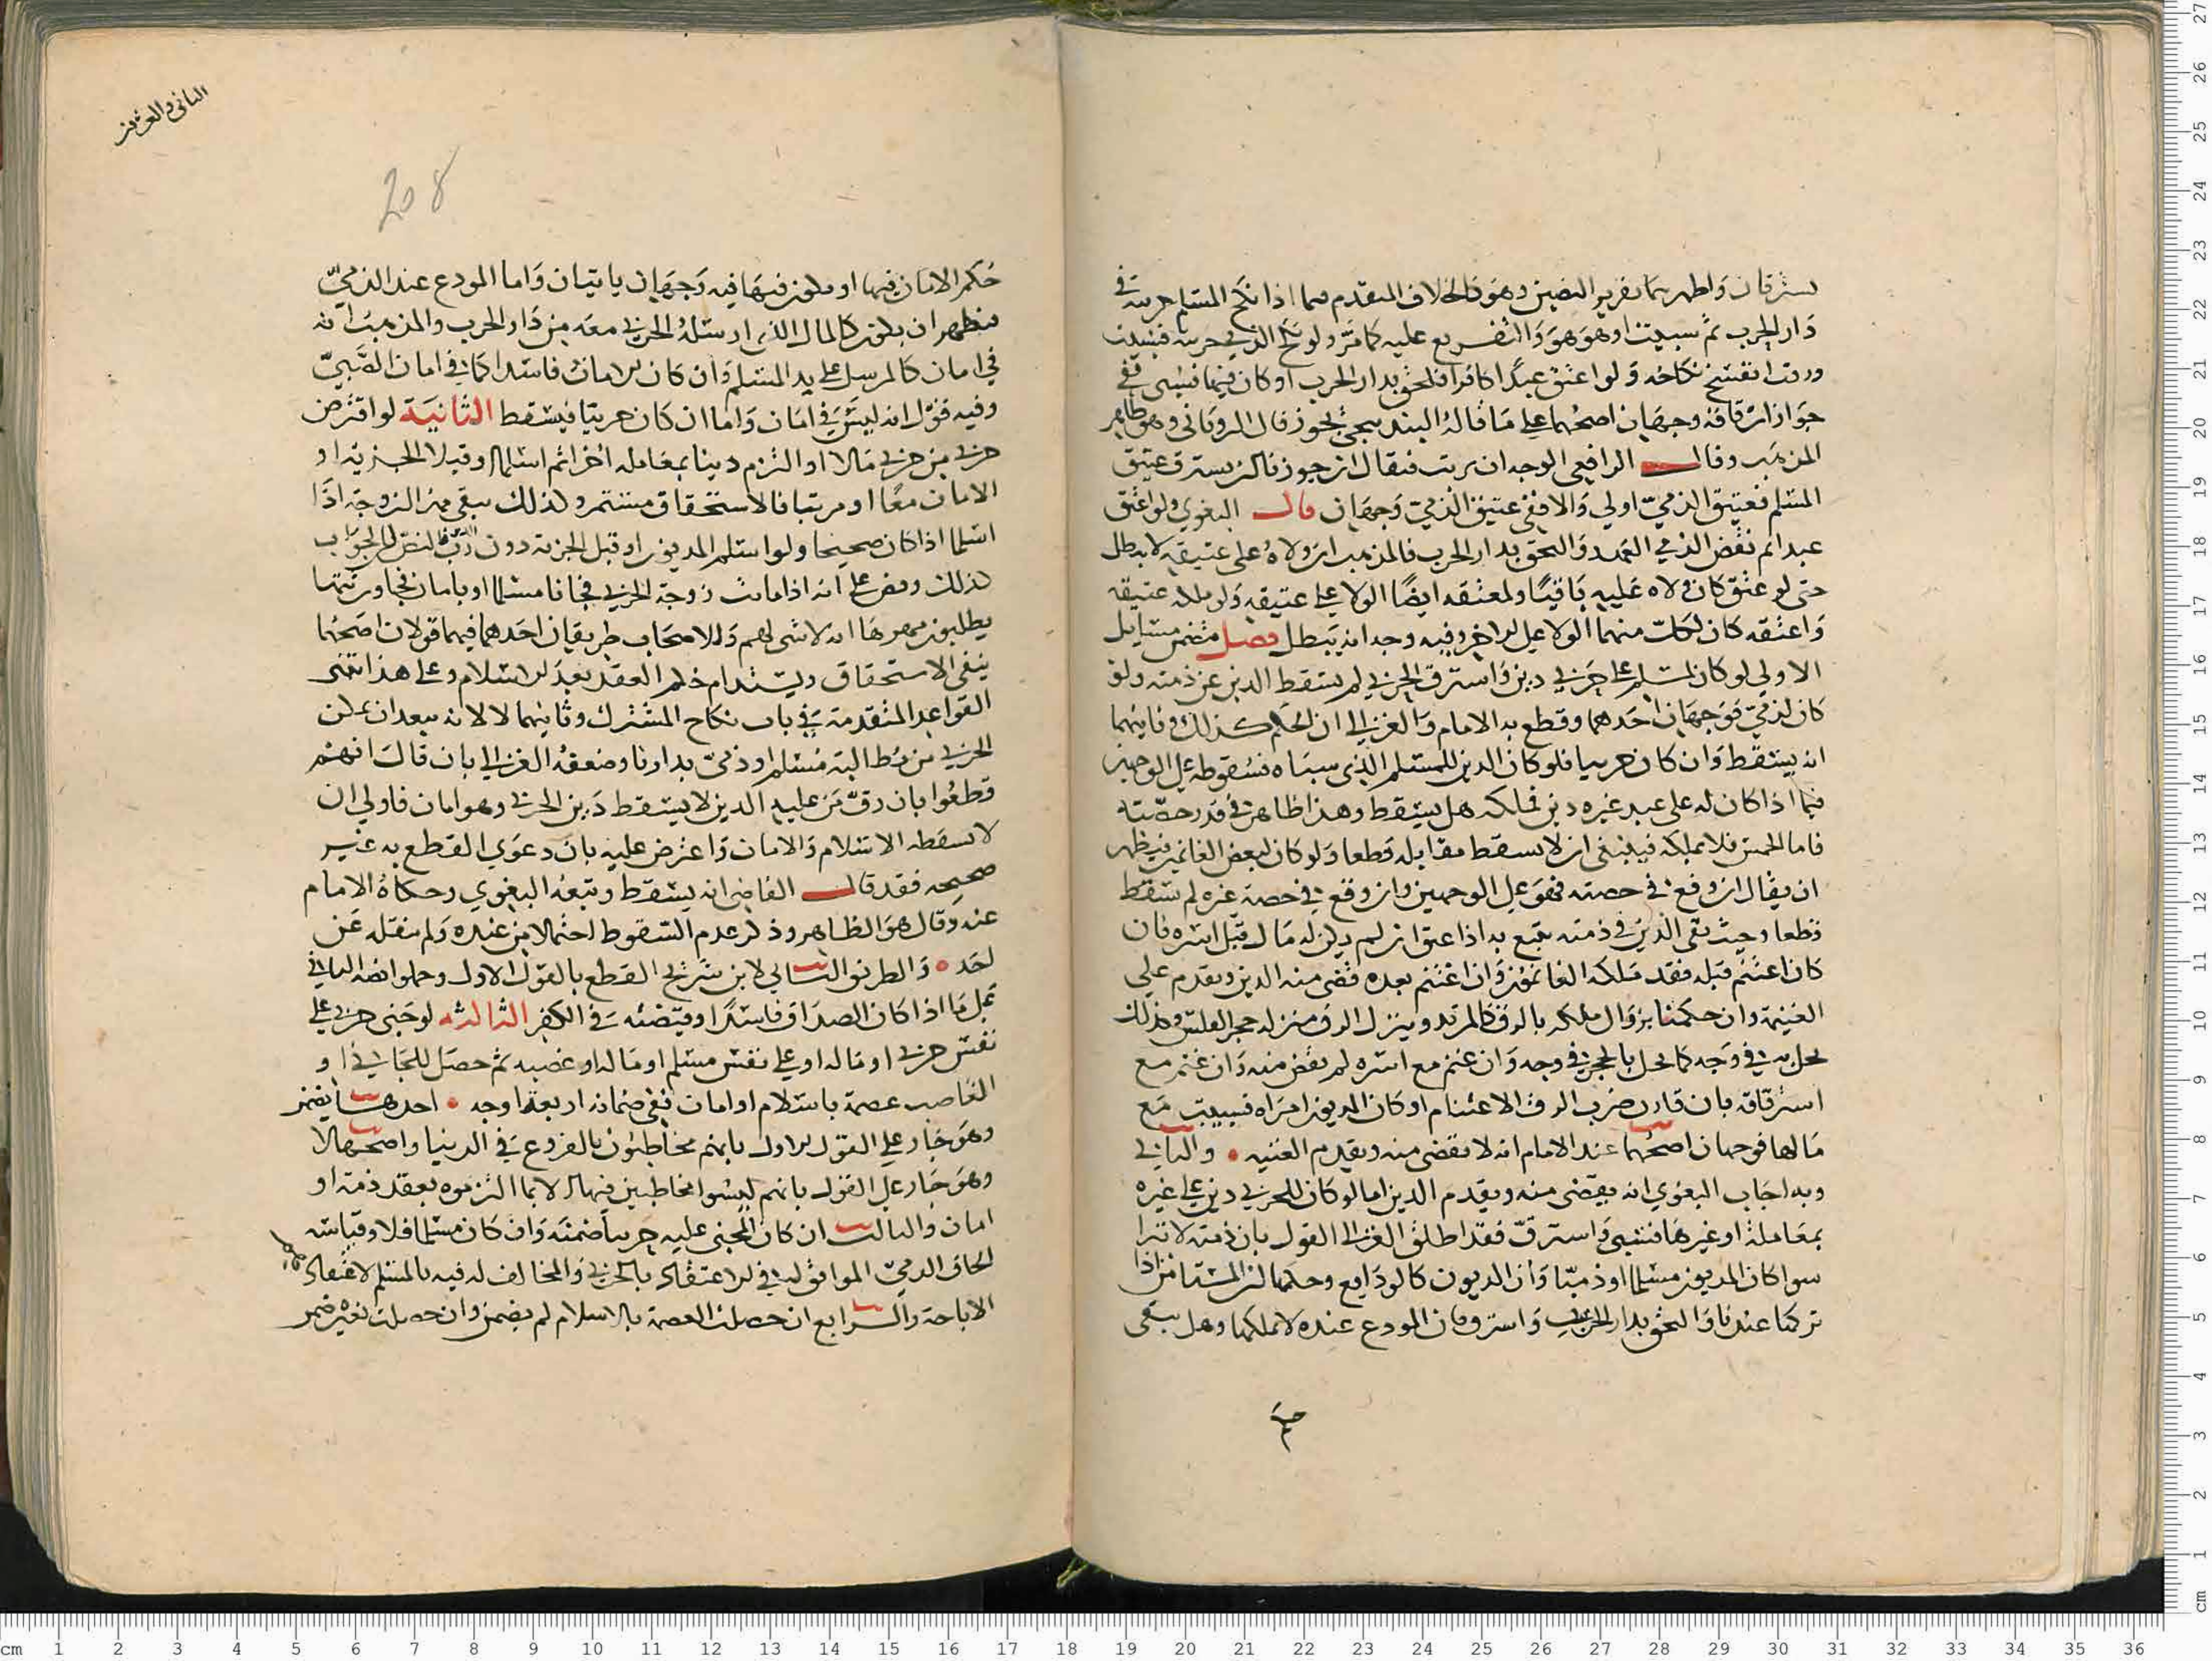 يسترقان واظهرهما تقرير النصين وهو كالخلاف المتقدم فيما اذا نكح المسلم حربية في
دار الحرب ثم سبيت او هو هو والتفريع عليه كما مر ولو نكح الذمي حربية فسبيت
ورقت انفسخ نكاحه ولو اعتق عبدا كافرا فلحق بدار الحرب او كان فيها فسبي ففي
جواز ارقاقه وجهان اصحهما على ما قاله البندنيجي يجوز قال الروياني وهو ظاهر
المذهب وقال الرافعي الوجه ان يرتب فيقال ان جوزنا ان يسترق عتيق
المسلم فعتيق الذمي اولى والا ففي عتيق الذمي وجهان قال البغوي ولو اعتق
عبدا ثم نقض الذمي العهد والتحق بدار الحرب فالمذهب ان ولاه على عتيقه لا يبطل
حتى لو عتق كان ولاه عليه باقيا ولمعتقه ايضا الولا على عتيقه ولو ملكه عتيقه
واعتقه كان لكل منهما الولا على الاخر وفيه وجه انه يبطل فصل متضمن مسايل
الاولى لو كان لمسلم على حربي دين واسترق الحربي لم يسقط الدين عن ذمته ولو
كان لذمي فوجهان احدهما وقطع به الامام والغزالي ان الحكم كذلك وثانيهما
انه يسقط وان كان حربيا فلو كان الدين للمسلم الذي سباه فسقوطه على الوجهين
فيما اذا كان له على عبد غيره دين فملكه هل يسقط وهذا ظاهر في قدر حصته
فاما الخمس فلا يملكه فينبغي ان لا يسقط مقابله قطعا ولو كان لبعض الغانمين فيظهر
ان يقال ان وقع في حصته فهو على الوجهين وان وقع في حصة غيره لم يسقط
قطعا وحيث بقي الدين في ذمته يتبع به اذا عتق ان لم يكن له مال قبل اسره فان
كان اغتنم قبله فقد ملكه الغانمون وان اغتنم بعده قضي منه الدين ويقدم على
الغنيمة وان حكمنا بزوال ملكه بالرق كالمرتد وينزل الرق منزلة حجر الفلس وكذلك
يحل به في وجه كما يحل بالحجر في وجه وان غنم مع اسره لم يقض منه وان غنم مع
استرقاقه بان قارن ضرب الرق الاغتنام او كان المديون امراة فسبيت مع
مالها فوجهان اصحهما عند الامام انه لا يقضى منه ويقدم الغنيمة والثاني
وبه اجاب البغوي انه يقضى منه ويقدم الدين اما لو كان للحربي دين على غيره
بمعاملة او غيرها فسبي واسترق فقد اطلق الغزالي القول بان ذمته لا تبرا
سوا كان المديون مسلما او ذميا وان الديون كالودايع وحكمها ان المستامن اذا
تركها عندنا والتحق بدار الحرب واسترق فان المودع عنده لا يملكها وهل يبقى
الثاني والعشرين
208
حكم الامان فيها او يكون فيها فيه وجهان ياتيان واما المودع عند الذمي
فيظهر ان يكون كالمال الذي ارسله الحربي معه من دار الحرب والمذهب انه
في امان كالمرسل على يد المسلم وان كان الامان فاسدا كما في امان الصبي
وفيه قول انه ليس في امان واما ان كان حربيا فيسقط الثانية لو اقترض
حربي من حربي مالا او التزم دينا بمعاملة اخر ثم اسلما او قبلا الجزية او
الامان معا او مرتبا فالاستحقاق مستمر وكذلك يبقى مهر الزوجة اذا
اسلما اذا كان صحيحا ولو اسلم المديون او قبل الجزية دون رب فالنص ان الجواب
كذلك ونص على انه اذا ماتت زوجة الحربي فجانا مسلما او بامان فجا ورثتها
يطلبون مهرها انه لا شي لهم وللاصحاب طريقان احدهما فيهما قولان اصحهما
ينفي الاستحقاق ويستدام حكم العقد بعد الاسلام وعلى هذا تبتنى
القواعد المتقدمة في باب نكاح المشرك وثانيهما لا لانه يبعد ان يمكن
الحربي من مطالبة مسلم او ذمي بدارنا وضعفه الغزالي بان قال انهم
قطعوا بان رق من عليه الدين لا يسقط دين الحربي وهو امان فاولى ان
لا يسقطه الاسلام والامان واعترض عليه بان دعوى القطع به غير
صحيحه فقد قال القاضي انه يسقط وتبعه البغوي وحكاه الامام
عنه وقال هو الظاهر وذكر عدم السقوط احتمالا من عنده ولم ينقله عن
احد والطريق الثاني لابن سريج القطع بالقول الاول وحملوا نصه الثاني
على ما اذا كان الصداق فاسدا وقبضته في الكفر الثالثه لو جنى حربي على
نفس حربي او ماله او على نفس مسلم او ماله او غصبه ثم حصل للجاني او
الغاصب عصمة باسلام او امان ففي ضمانه اربعة اوجه احدها يضمن
وهو جار على القول الاول بانهم مخاطبون بالفروع في الدنيا واصحها لا
وهو جار على القول بانهم ليسوا مخاطبين فيها الا بما التزموه بعقد ذمة او
امان والثالث ان كان المجني عليه حربيا ضمنه وان كان مسلما فلا وقياسه
الحاق الذمي الموافق له في الاعتقاد بالحربي والمخالف له فيه بالمسلم لاعتقاد
الاباحة والرابع ان حصلت العصمة بالاسلام لم يضمن وان حصلت بغيره ضمن